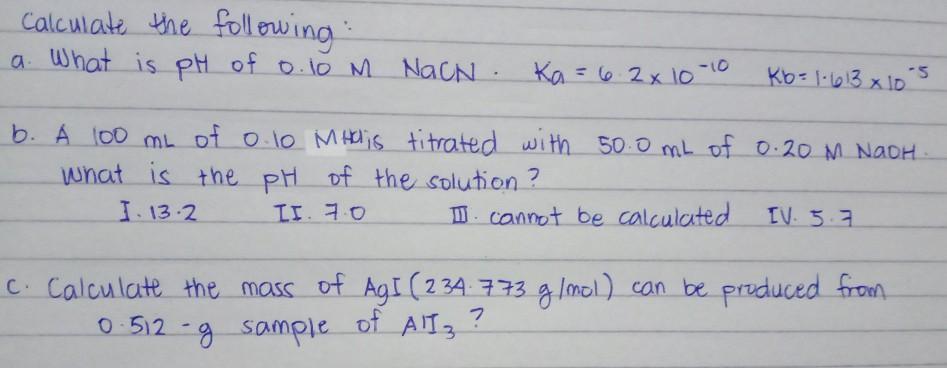 Calculate the following:
a. What is pH of 0.10 M NaCN. Ka = 6.2 x 10⁻¹⁰ Kb = 1.613 x 10⁻⁵
b. A 100 mL of 0.10 M HCl is titrated with 50.0 mL of 0.20 M NaOH.
What is the pH of the solution?
I. 13.2 II. 7.0 III. cannot be calculated IV. 5.7
c. Calculate the mass of AgI (234.773 g/mol) can be produced from
0.512-g sample of AlI₃?